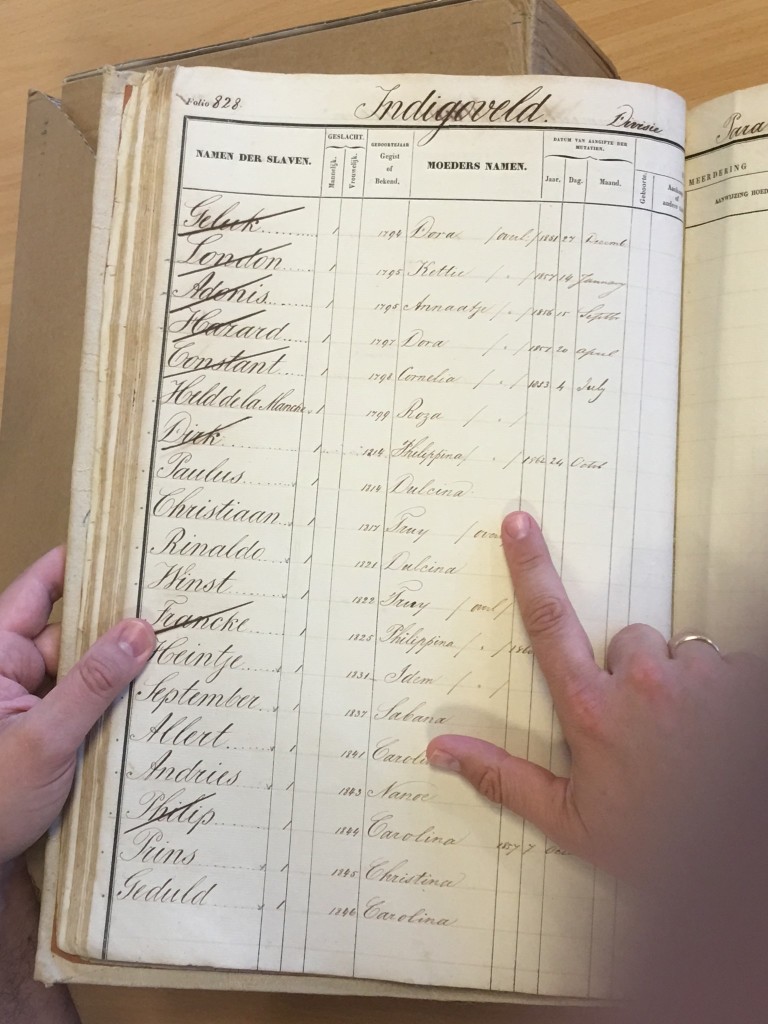 Folio 828. Indigoveld. Divisie Para
NAMEN DER SLAVEN. GESLACHT. Mannelijk. Vrouwelijk. GEBOORTEJAAR Gegist of Bekend. MOEDERS NAMEN. DATUM VAN AANGIFTE DER MUTATIEN. Jaar. Dag. Maand. Geboorte. MEERDERING
Geluk 1 1794 Dora /overl/ 27
London 1 1795 Kettie / " / 1857 14 January
Adonis 1 1795 Annaatje / " / 1856 15 Septbr
Hazard 1 1797 Dora / " / 1857 20 april
Constant 1 1798 Cornelia / " / 1853 4 July
Held de la Manche 1 1799 Roza / " /
Dirk 1 1814 Philippina / " / 1862 24 Octob
Paulus 1 1814 Dulcina
Christiaan 1 1817 Truy
Rinaldo 1 1821 Dulcina
Winst 1 1822 Truy /overl/
Francke 1 1825 Philippina / " /
Heintje 1 1831 Idem / " /
September 1 1837 Sabana
Allert 1 1841
Andries 1 1843 Nanoe
Philip 1 1844 Carolina 1857 7
Prins 1 1845 Christina
Geduld 1 1846 Carolina